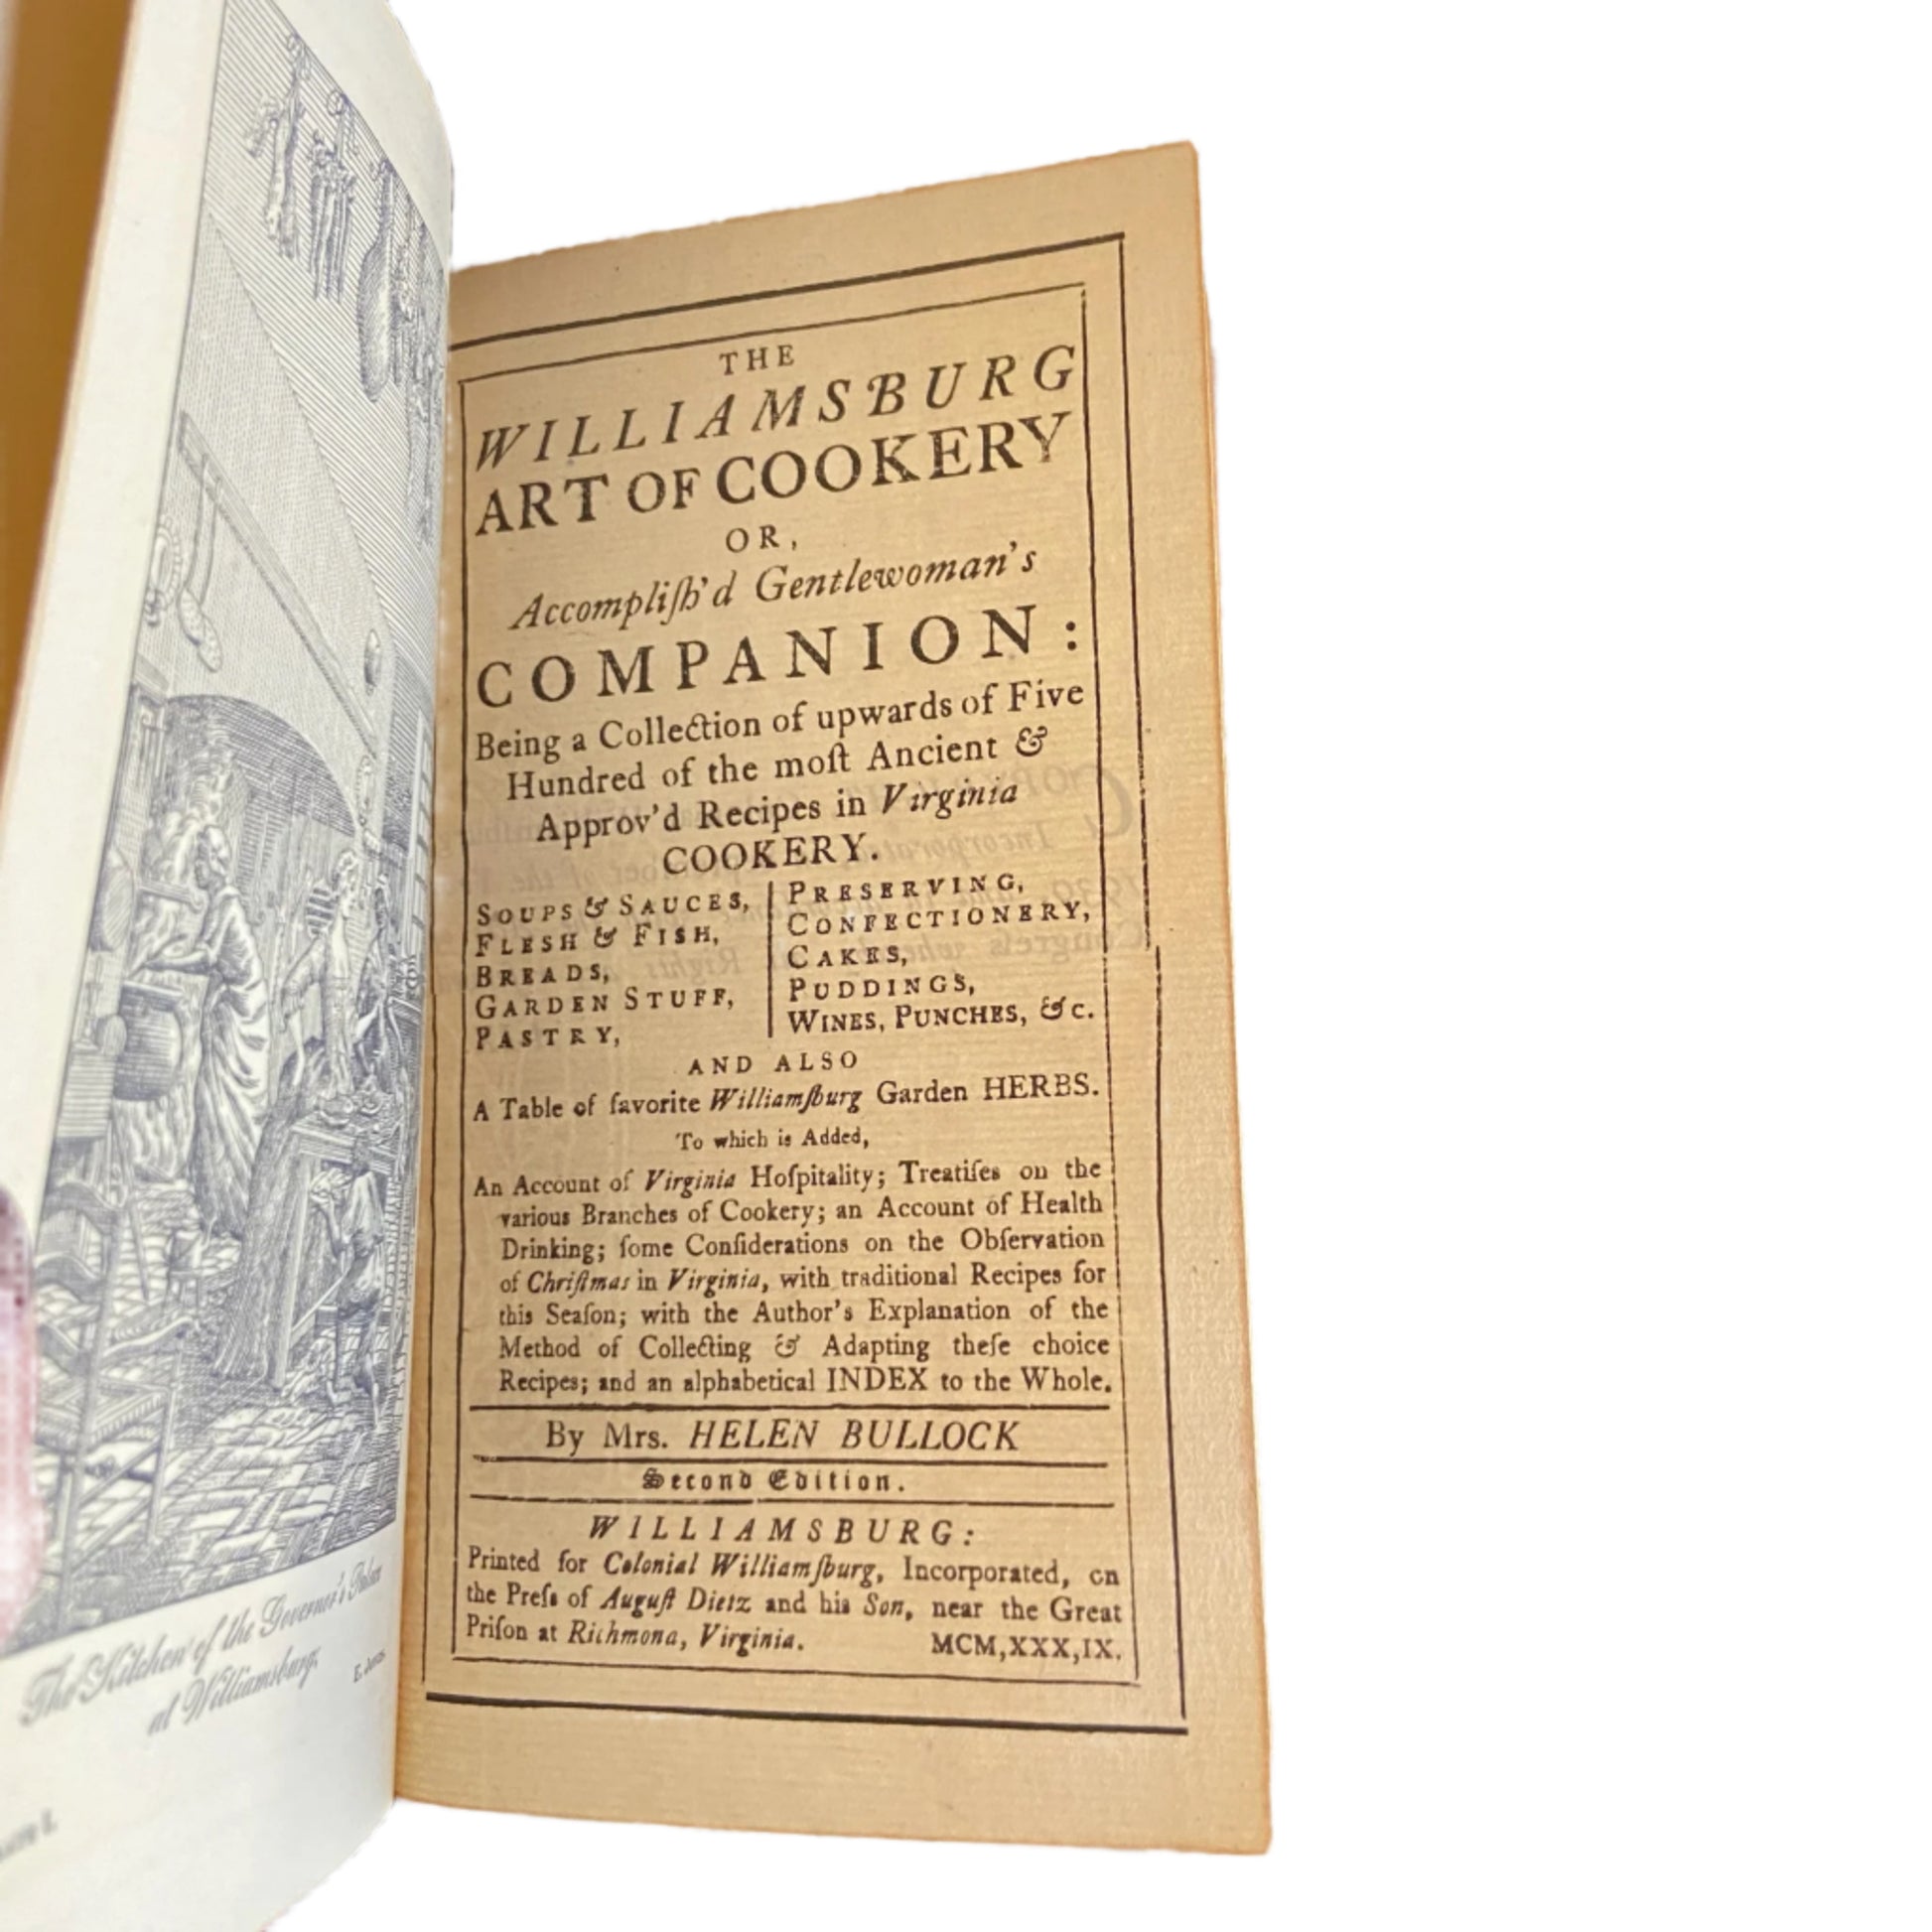 The Kitchen of the Governor's Palace
at Williamsburg.
THE
WILLIAMSBURG
ART OF COOKERY
OR,
Accompliſh'd Gentlewoman's
COMPANION:
Being a Collection of upwards of Five
Hundred of the moſt Ancient &
Approv'd Recipes in Virginia
COOKERY.
SOUPS & SAUCES,
FLESH & FISH,
BREADS,
GARDEN STUFF,
PASTRY,
PRESERVING,
CONFECTIONERY,
CAKES,
PUDDINGS,
WINES, PUNCHES, &c.
AND ALSO
A Table of favorite Williamſburg Garden HERBS.
To which is Added,
An Account of Virginia Hoſpitality; Treatiſes on the
various Branches of Cookery; an Account of Health
Drinking; ſome Conſiderations on the Obſervation
of Chriſtmas in Virginia, with traditional Recipes for
this Seaſon; with the Author's Explanation of the
Method of Collecting & Adapting theſe choice
Recipes; and an alphabetical INDEX to the Whole.
By Mrs. HELEN BULLOCK
Second Edition.
WILLIAMSBURG:
Printed for Colonial Williamſburg, Incorporated, on
the Preſs of Auguſt Dietz and his Son, near the Great
Priſon at Richmond, Virginia. MCM,XXX,IX.